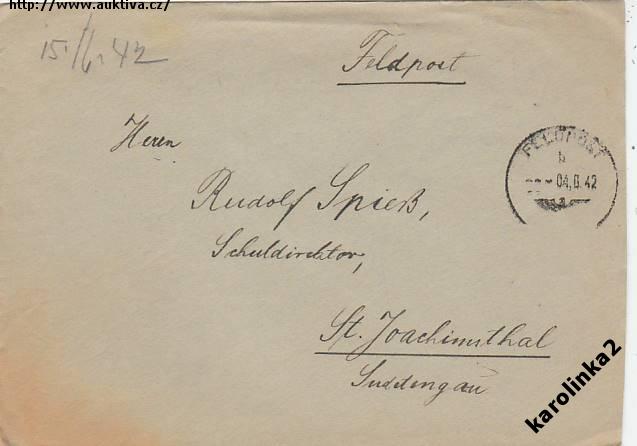 http://www.auktiva.cz/
15./6. 42
Feldpost
FELDPOST
b
04.6.42
a
Herrn
Rudolf Spieß,
Schuldirektor,
St. Joachimsthal
Sudetengau
karolinka2